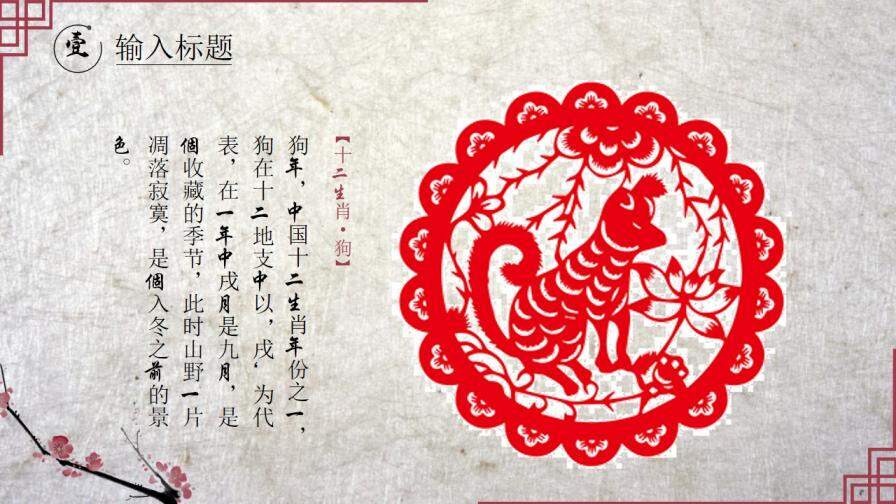 壹
输入标题
【十二生肖·狗】
狗年，中国十二生肖年份之一，
狗在十二地支中以，戌‘为代
表，在一年中戌月是九月，是
個收藏的季节，此时山野一片
凋落寂寞，是個入冬之前的景
色。